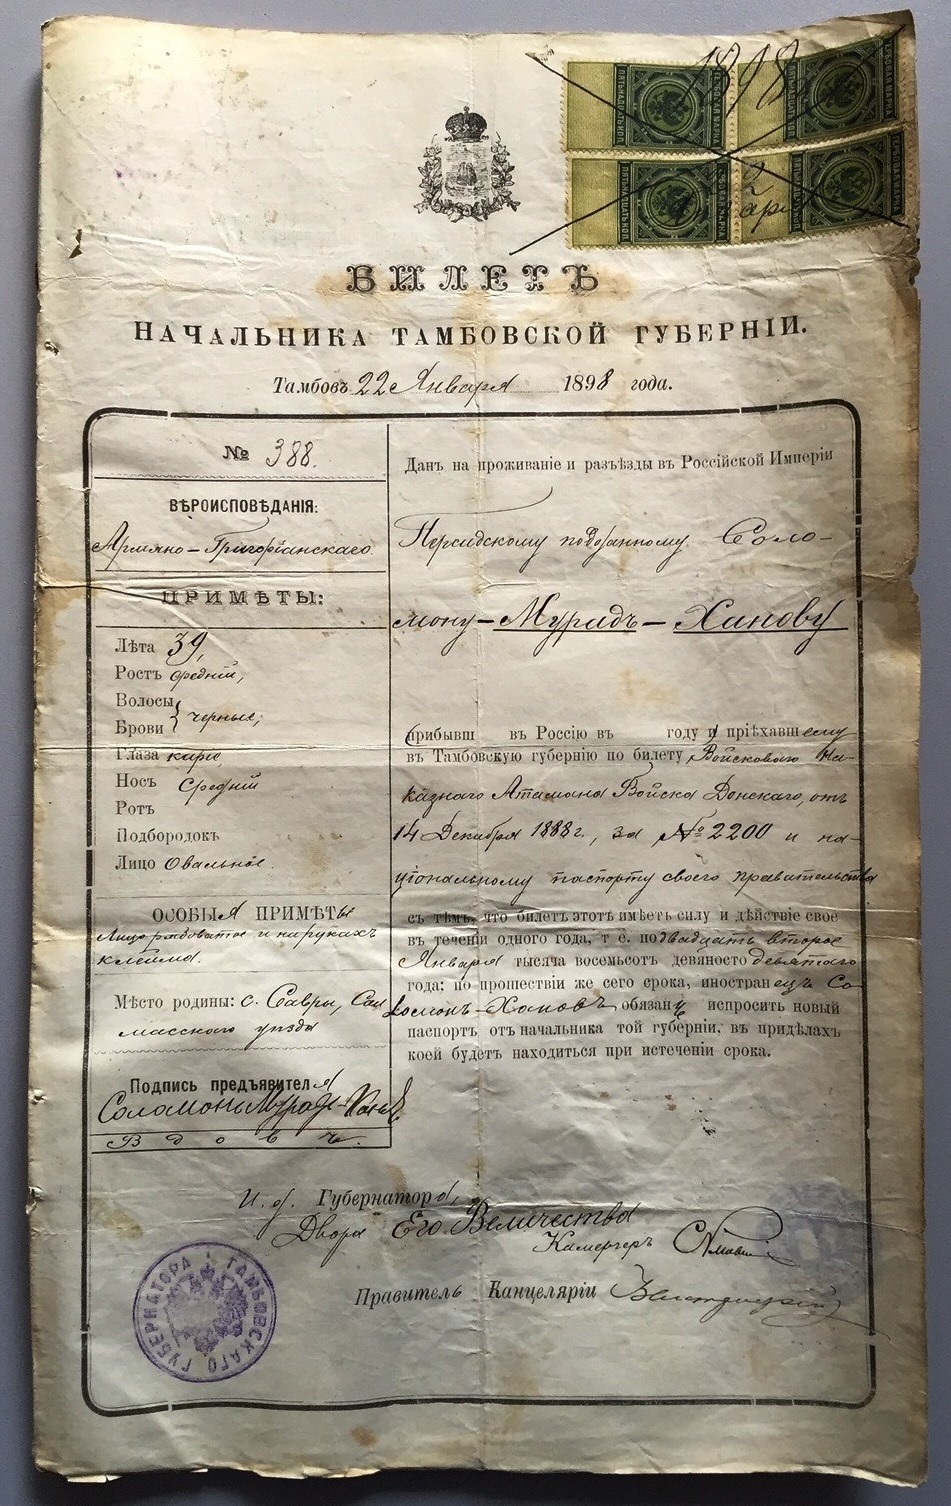 1898
22
Января
ГЕРБОВАЯ МАРКА
ПЯТЬНАДЦАТЬ КОП
ГЕРБОВАЯ МАРКА
ПЯТЬНАДЦАТЬ КОП
ГЕРБОВАЯ МАРКА
ПЯТЬНАДЦАТЬ КОП
ГЕРБОВАЯ МАРКА
ПЯТЬНАДЦАТЬ КОП
БИЛЕТЪ
НАЧАЛЬНИКА ТАМБОВСКОЙ ГУБЕРНІИ.
Тамбовъ 22 Января 1898 года.
№ 388.
ВѢРОИСПОВѢДАНІЯ:
Армяно-Григоріанскаго
ПРИМѢТЫ:
Лѣта 39,
Ростъ средній,
Волосы
Брови } черные;
Глаза каріе,
Носъ средній
Ротъ
Подбородокъ
Лицо овальное.
ОСОБЫЯ ПРИМѢТЫ
Лицо рябоватое и на рукахъ
клейма.
Мѣсто родины: с. Савры, Сал
масскаго уѣзда
Подпись предъявителя
Соломонъ Мурадъ-Хановъ
Вдовъ.
Данъ на проживаніе и разъѣзды въ Россійской Имперіи
Персидскому подданному Соло-
мону-Мурадъ-Ханову
прибывш въ Россію въ году и пріѣхавшему
въ Тамбовскую губернію по билету Войсковаго На-
казнаго Атамана Войска Донскаго, отъ
14 Декабря 1888 г., за № 2200 и на-
ціональному паспорту своего правительства
съ тѣмъ, что билетъ этотъ имѣетъ силу и дѣйствіе свое
въ теченіи одного года, т. е. по двадцать второе
Января тысяча восемьсотъ девяносто девятаго
года; по прошествіи же сего срока, иностранецъ Со
ломонъ-Хановъ обязанъ испросить новый
паспортъ отъ начальника той губерніи, въ предѣлахъ
коей будетъ находиться при истеченіи срока.
И. д. Губернатора,
Двора Его Величества
Камергеръ
Правитель Канцеляріи
ТАМБОВСКАГО ГУБЕРНАТОРА